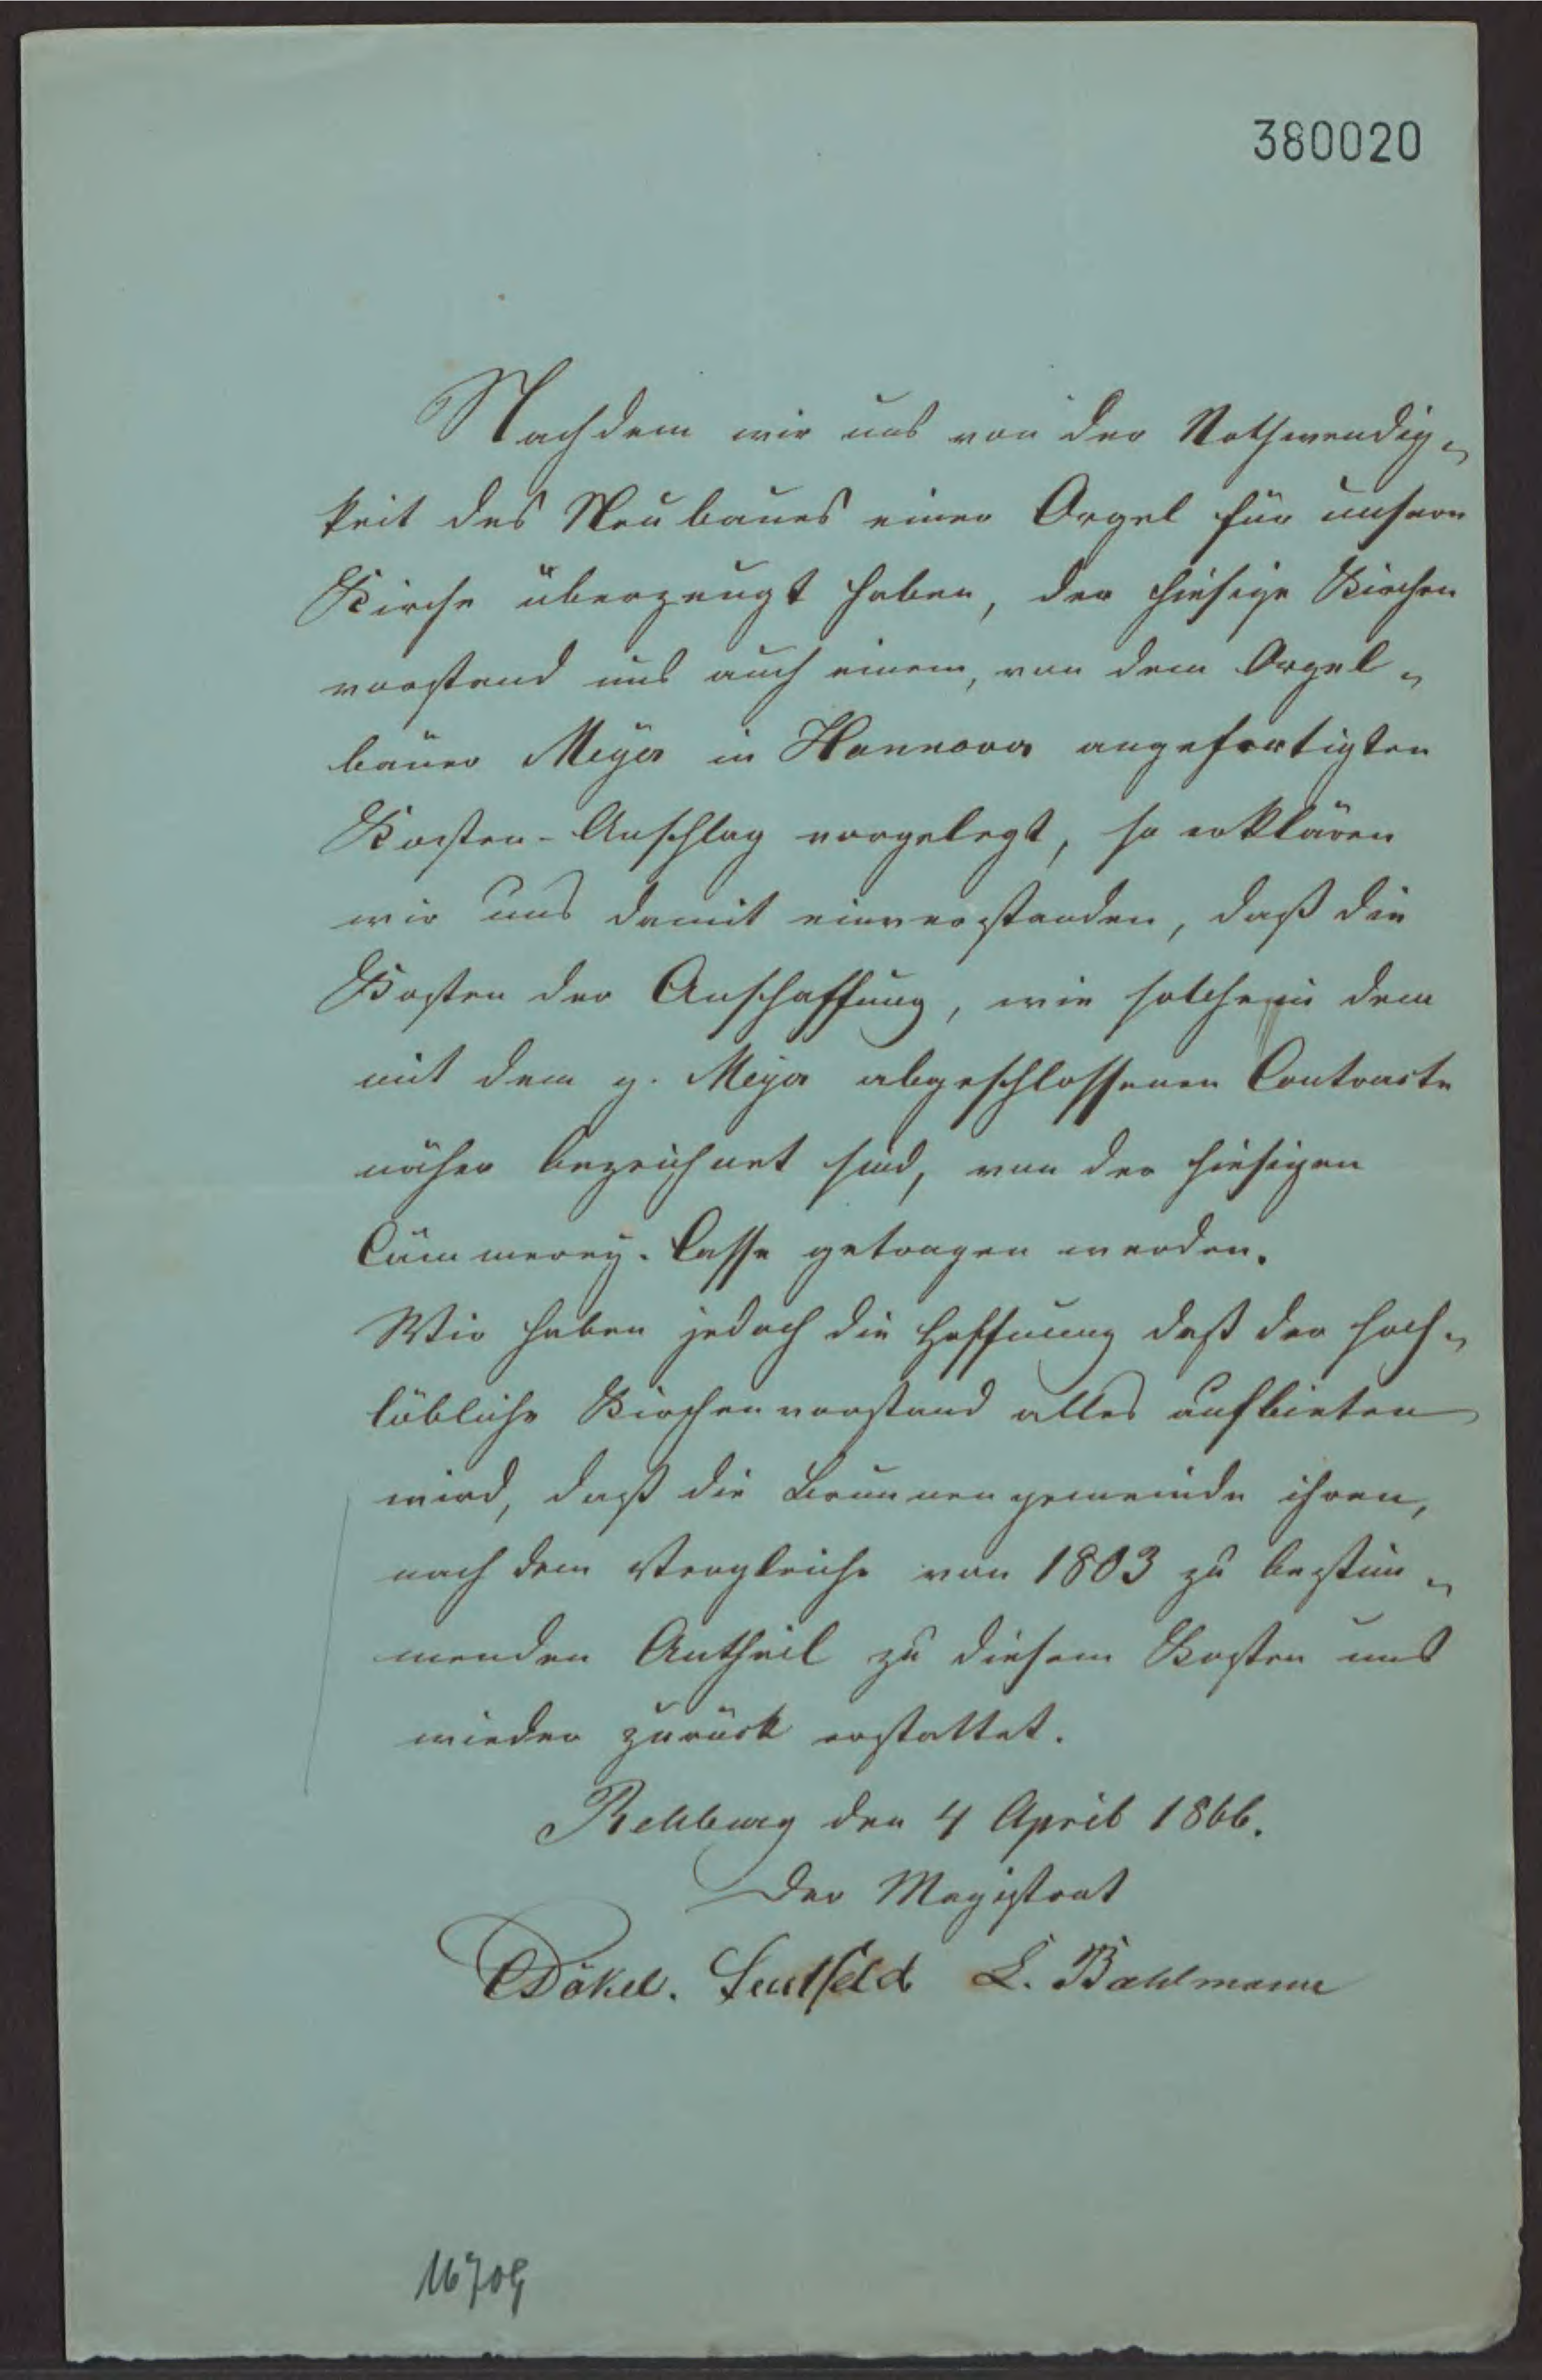 380020
Nachdem wir uns von der Nothwendig-
keit des Neubaues einer Orgel für unsere
Kirche überzeugt haben, der hiesige Kirchen
vorstand uns auch einem, von dem Orgel-
bauer Meyer in Hannover angefertigten
Kosten-Anschlag vorgelegt, so erklären
wir uns damit einverstanden, daß die
Kosten der Anschaffung, wie solche in dem
mit dem g. Meyer abgeschlossenen Contracte
näher bezeichnet sind, von der hiesigen
Cämmerey-Casse getragen werden.
Wir haben jedoch die Hoffnung daß der hoch-
löbliche Kirchenvorstand alles aufbieten
wird, daß die Brunnengemeinde ihren,
nach dem Vergleiche von 1803 zu bestim-
menden Antheil zu diesem Kosten uns
wieder zurück erstattet.
Rehburg den 4 April 1866.
Der Magistrat
Dökel. Seutfeld L. Bahlmann
16709